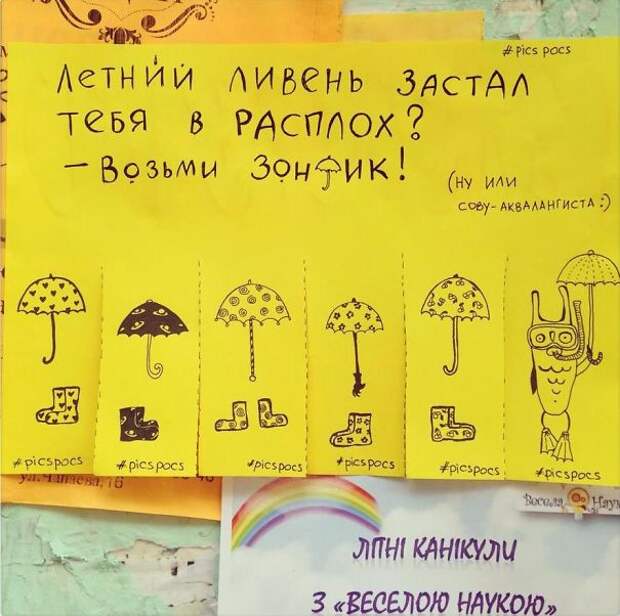 #pics pocs
ЛЕТНИЙ ЛИВЕНЬ ЗАСТАЛ
ТЕБЯ В РАСПЛОХ?
– ВОЗЬМИ ЗОНТИК!
(НУ ИЛИ
СОВУ-АКВАЛАНГИСТА:)
#picspocs
#picspocs
#picspocs
#picspocs
#picspocs
#picspocs
ул.Чапаєва, 16
Весела Наук
ЛІТНІ КАНІКУЛИ
З «ВЕСЕЛОЮ НАУКОЮ»